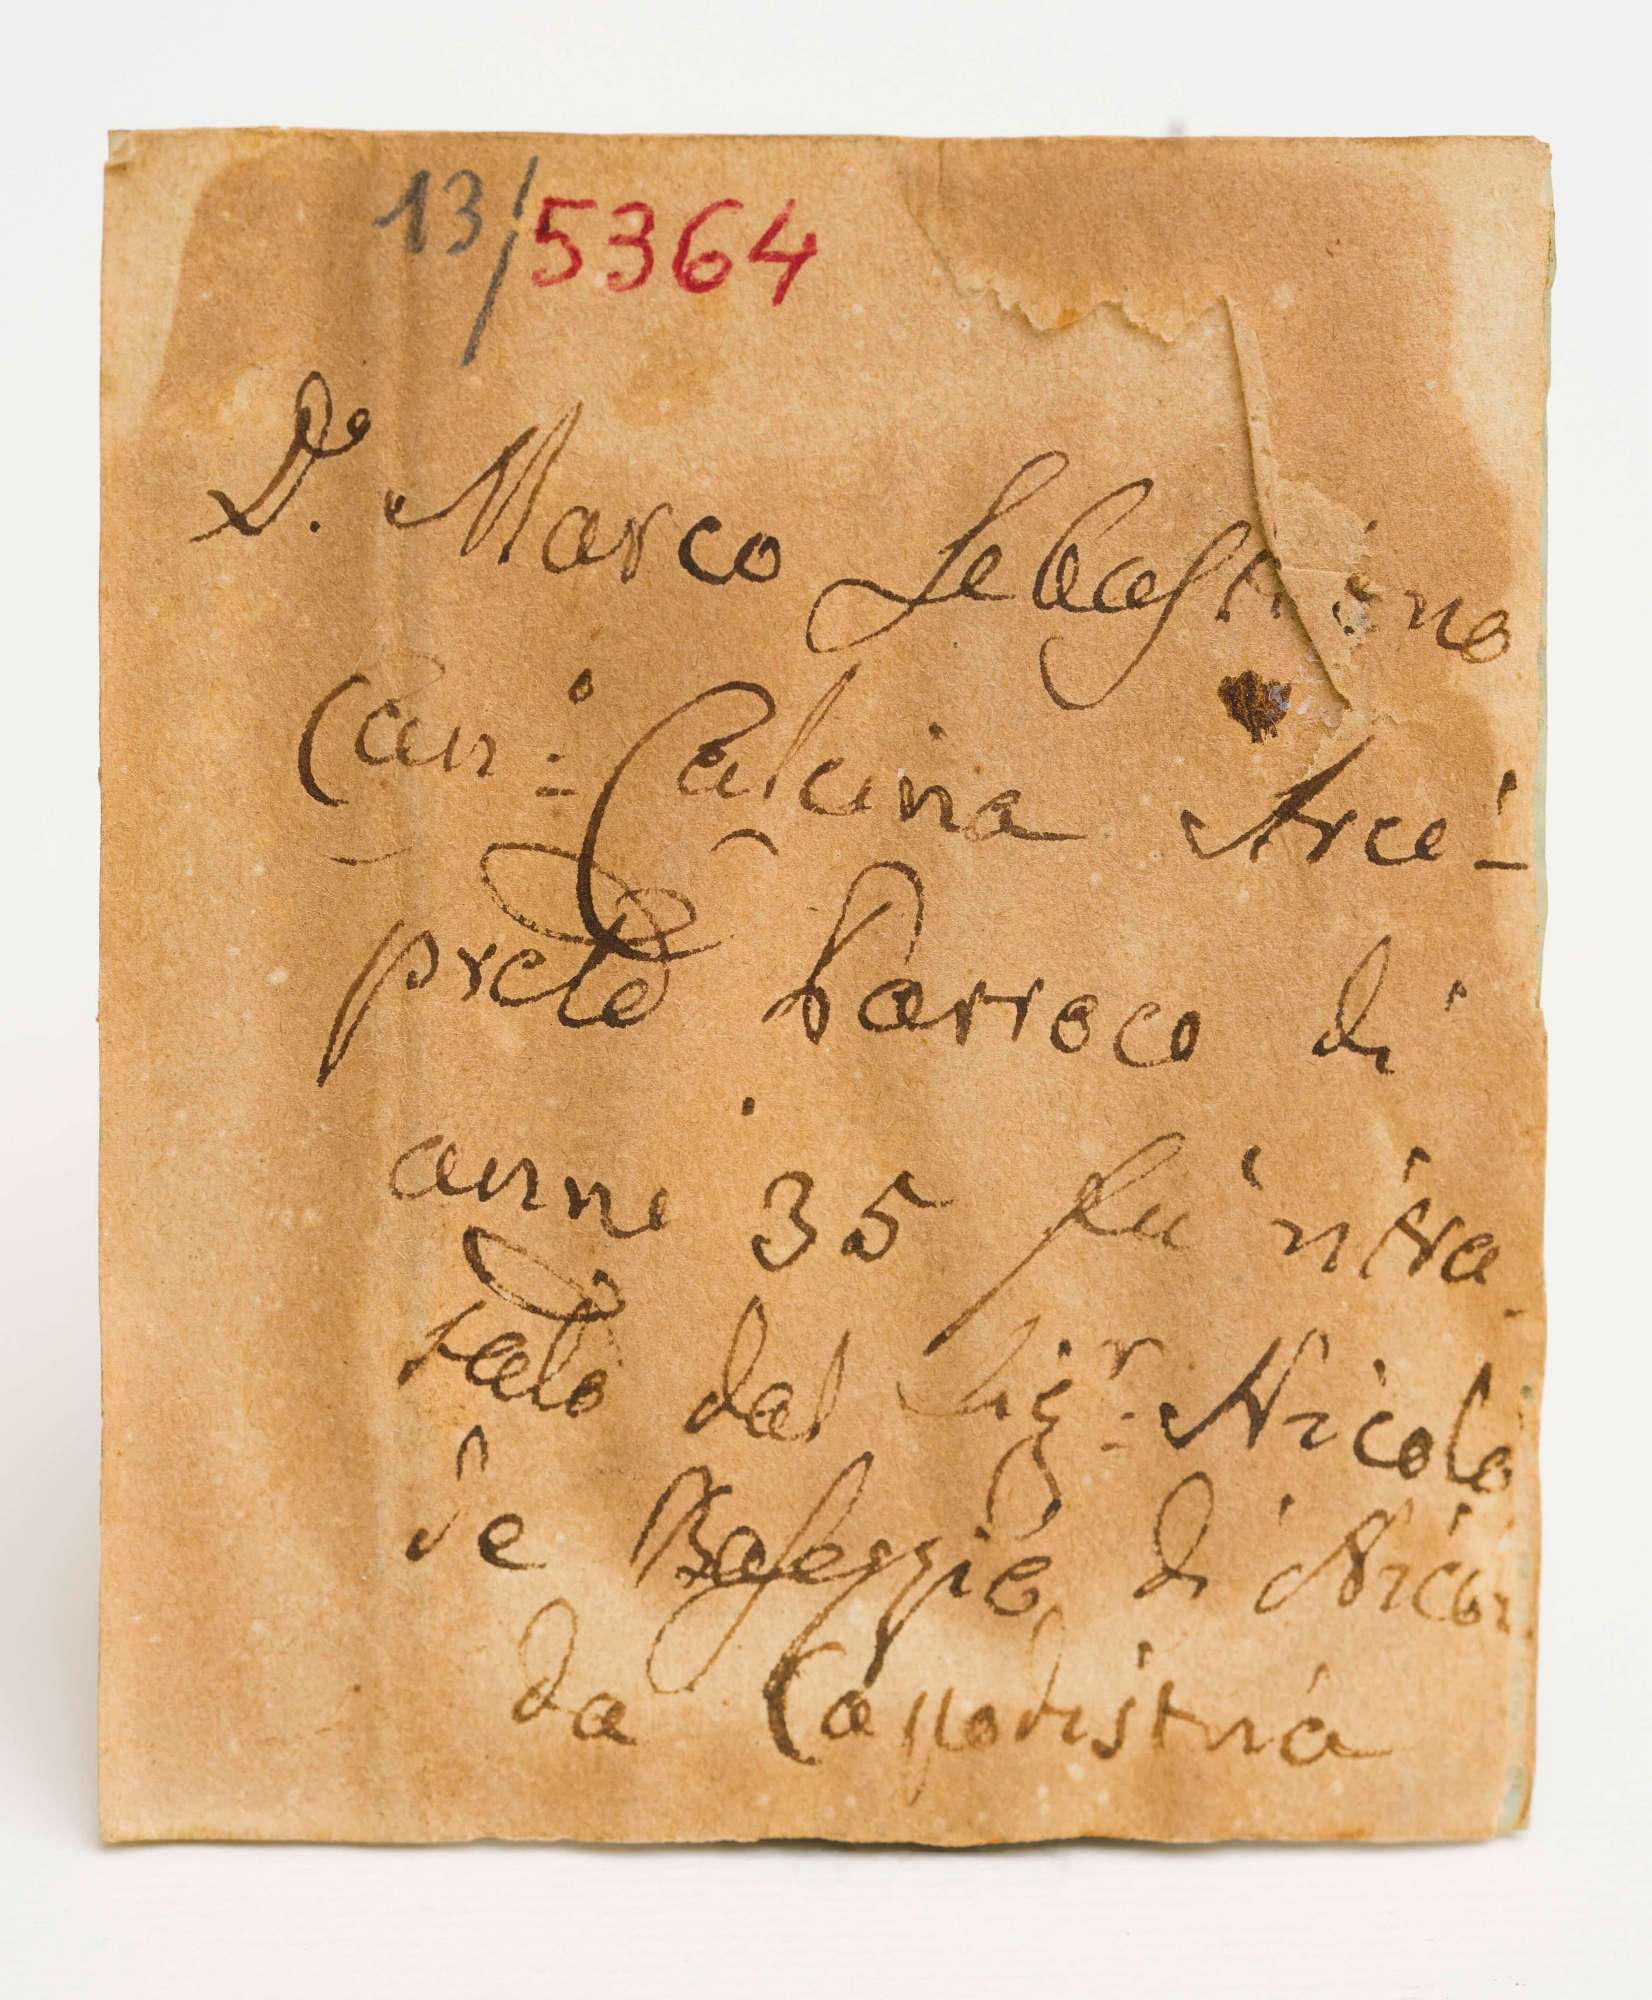 13/5364
Dº. Marco Sebastiano
Canº. Calcina Arci-
prete Parroco di
anni 35 fu ritra-
tato dal Sigr. Nicolò
de Baseggio di Nicol.
da Capodistria